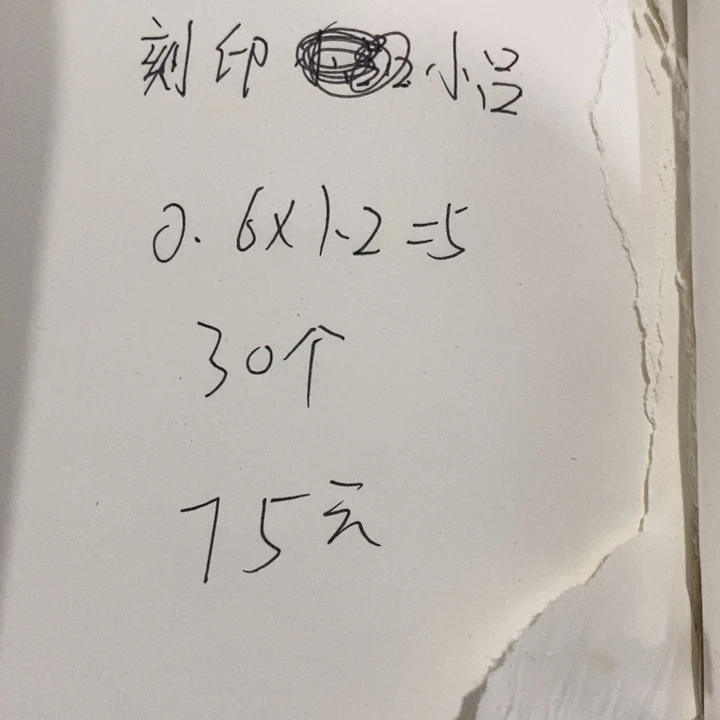 刻印 小吕
0.6×1.2=5
30个
75元